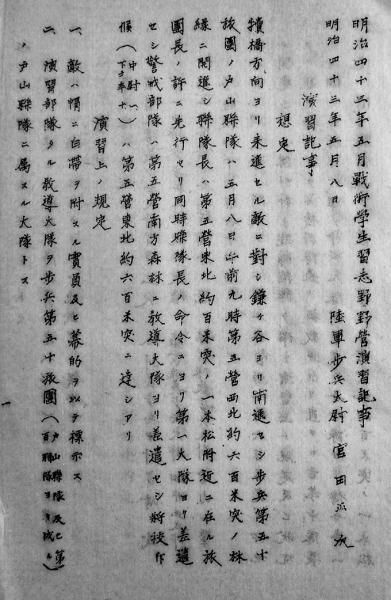 明治四十三年五月戰術學生習志野野營演習記事
明治四十三年五月八日
陸軍步兵大尉 宮田
演習記事
想定
犢橋方向ヨリ未進セル敵ニ對シ鎌ケ谷ヨリ南進セシ步兵第五十
旅團ノ戶山聯隊ハ五月八日午前九時第五營西北約六百米突ノ林
緣ニ開進シ聯隊長ハ第五營東北約百米突ノ一本松附近ニ在ル旅
團長ノ許ニ先行セリ同時聯隊長ノ命令ニヨリ第一大隊ヨリ差遣
セシ警戒部隊ハ第五營南方森林ニ教導大隊ヨリ差遣セシ將校斥
候(中尉一下士卒十)ハ第五營東北約六百米突ニ達シアリ
演習上ノ規定
一、敵ハ帽ニ白帶ヲ附スル實員及ヒ幕的ヲ以テ標示ス
二、演習部隊タル教導大隊ヲ步兵第五十旅團(戶山聯隊及ヒ第百聯隊ヨリ成ル)
ノ戶山聯隊ニ屬スル大隊トス
一